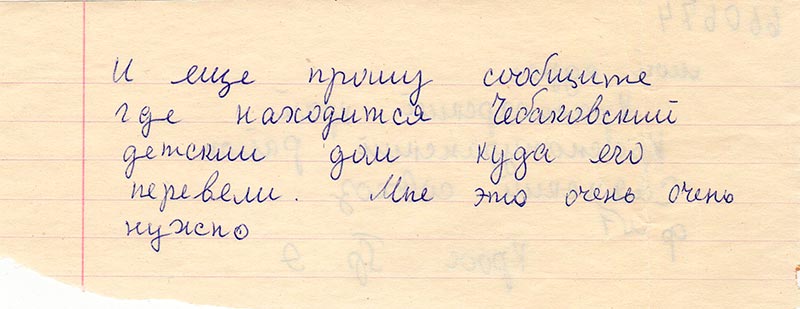 И еще прошу сообщите
где находится Чебаковский
детский дом куда его
перевели. Мне это очень очень
нужно